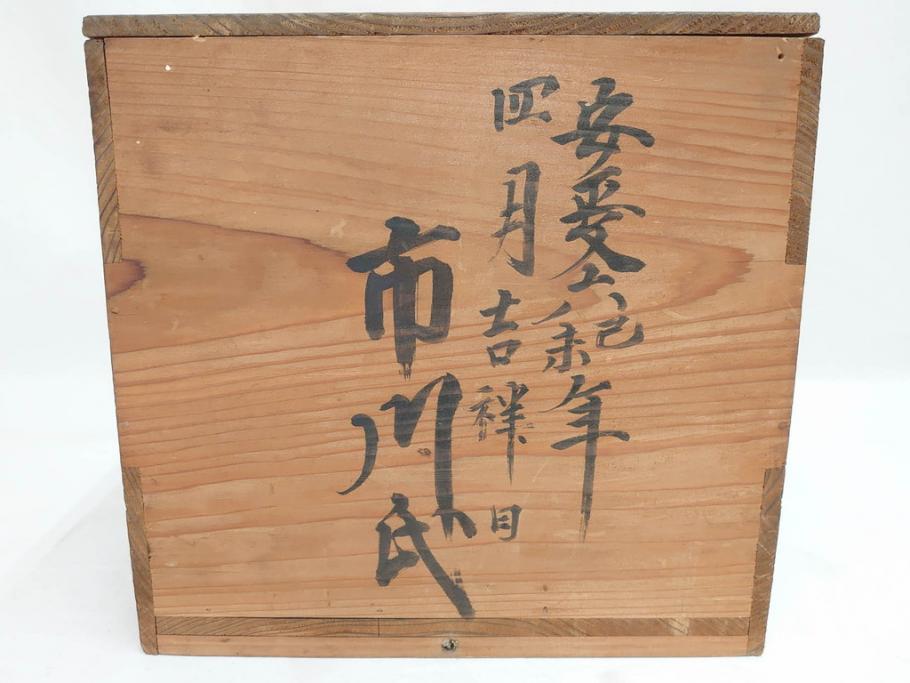 安政六己未年
四月吉祥日
市川氏